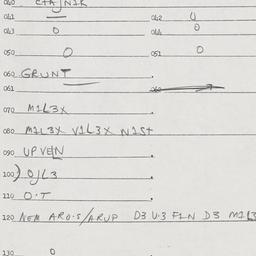 040 C+A JN1K
041 — 042 0
043 0 044 0
050 0 051 0
060 GRUNT
061 — 062
070 M1L3X
080 M1L3X V1L3X N1St
090 UPVEIN
100) OJL3
110 O·T
120 NEM ARO·S/ARUP D3 U·3 F1N D3 M1L3
130 0